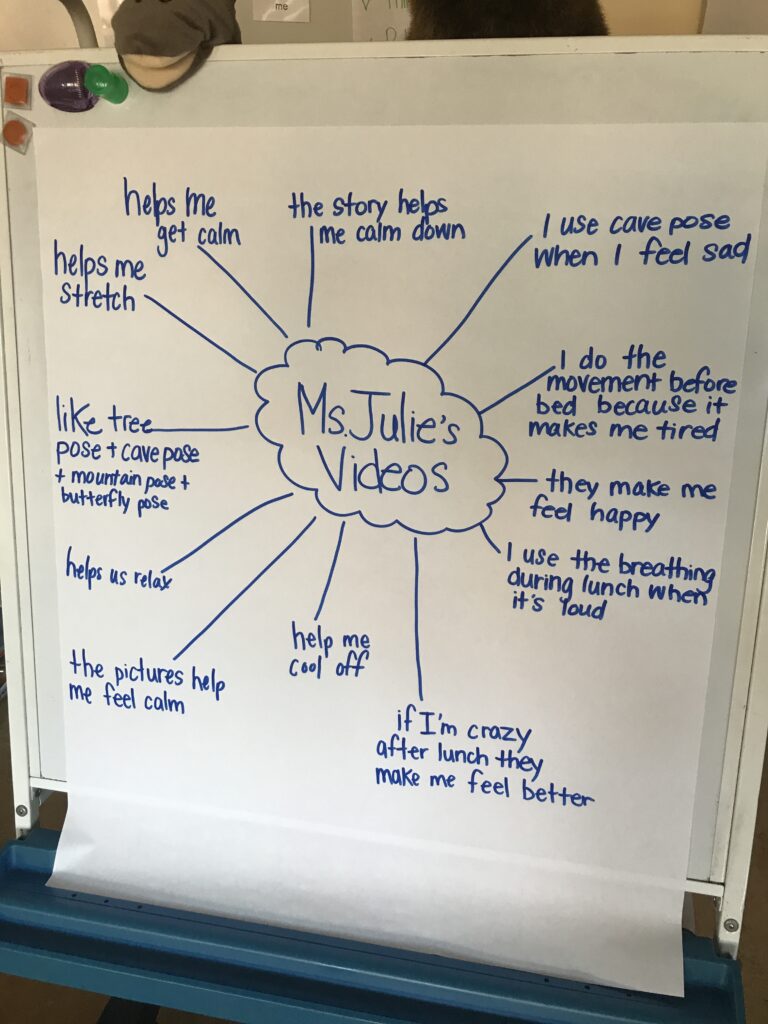 me
helps me
get calm
the story helps
me calm down
I use cave pose
when I feel sad
helps me
stretch
I do the
movement before
bed because it
makes me tired
Ms. Julie's
Videos
like tree
pose + cave pose
+ mountain pose +
butterfly pose
they make me
feel happy
I use the breathing
during lunch when
it's loud
helps us relax
help me
cool off
the pictures help
me feel calm
if I'm crazy
after lunch they
make me feel better